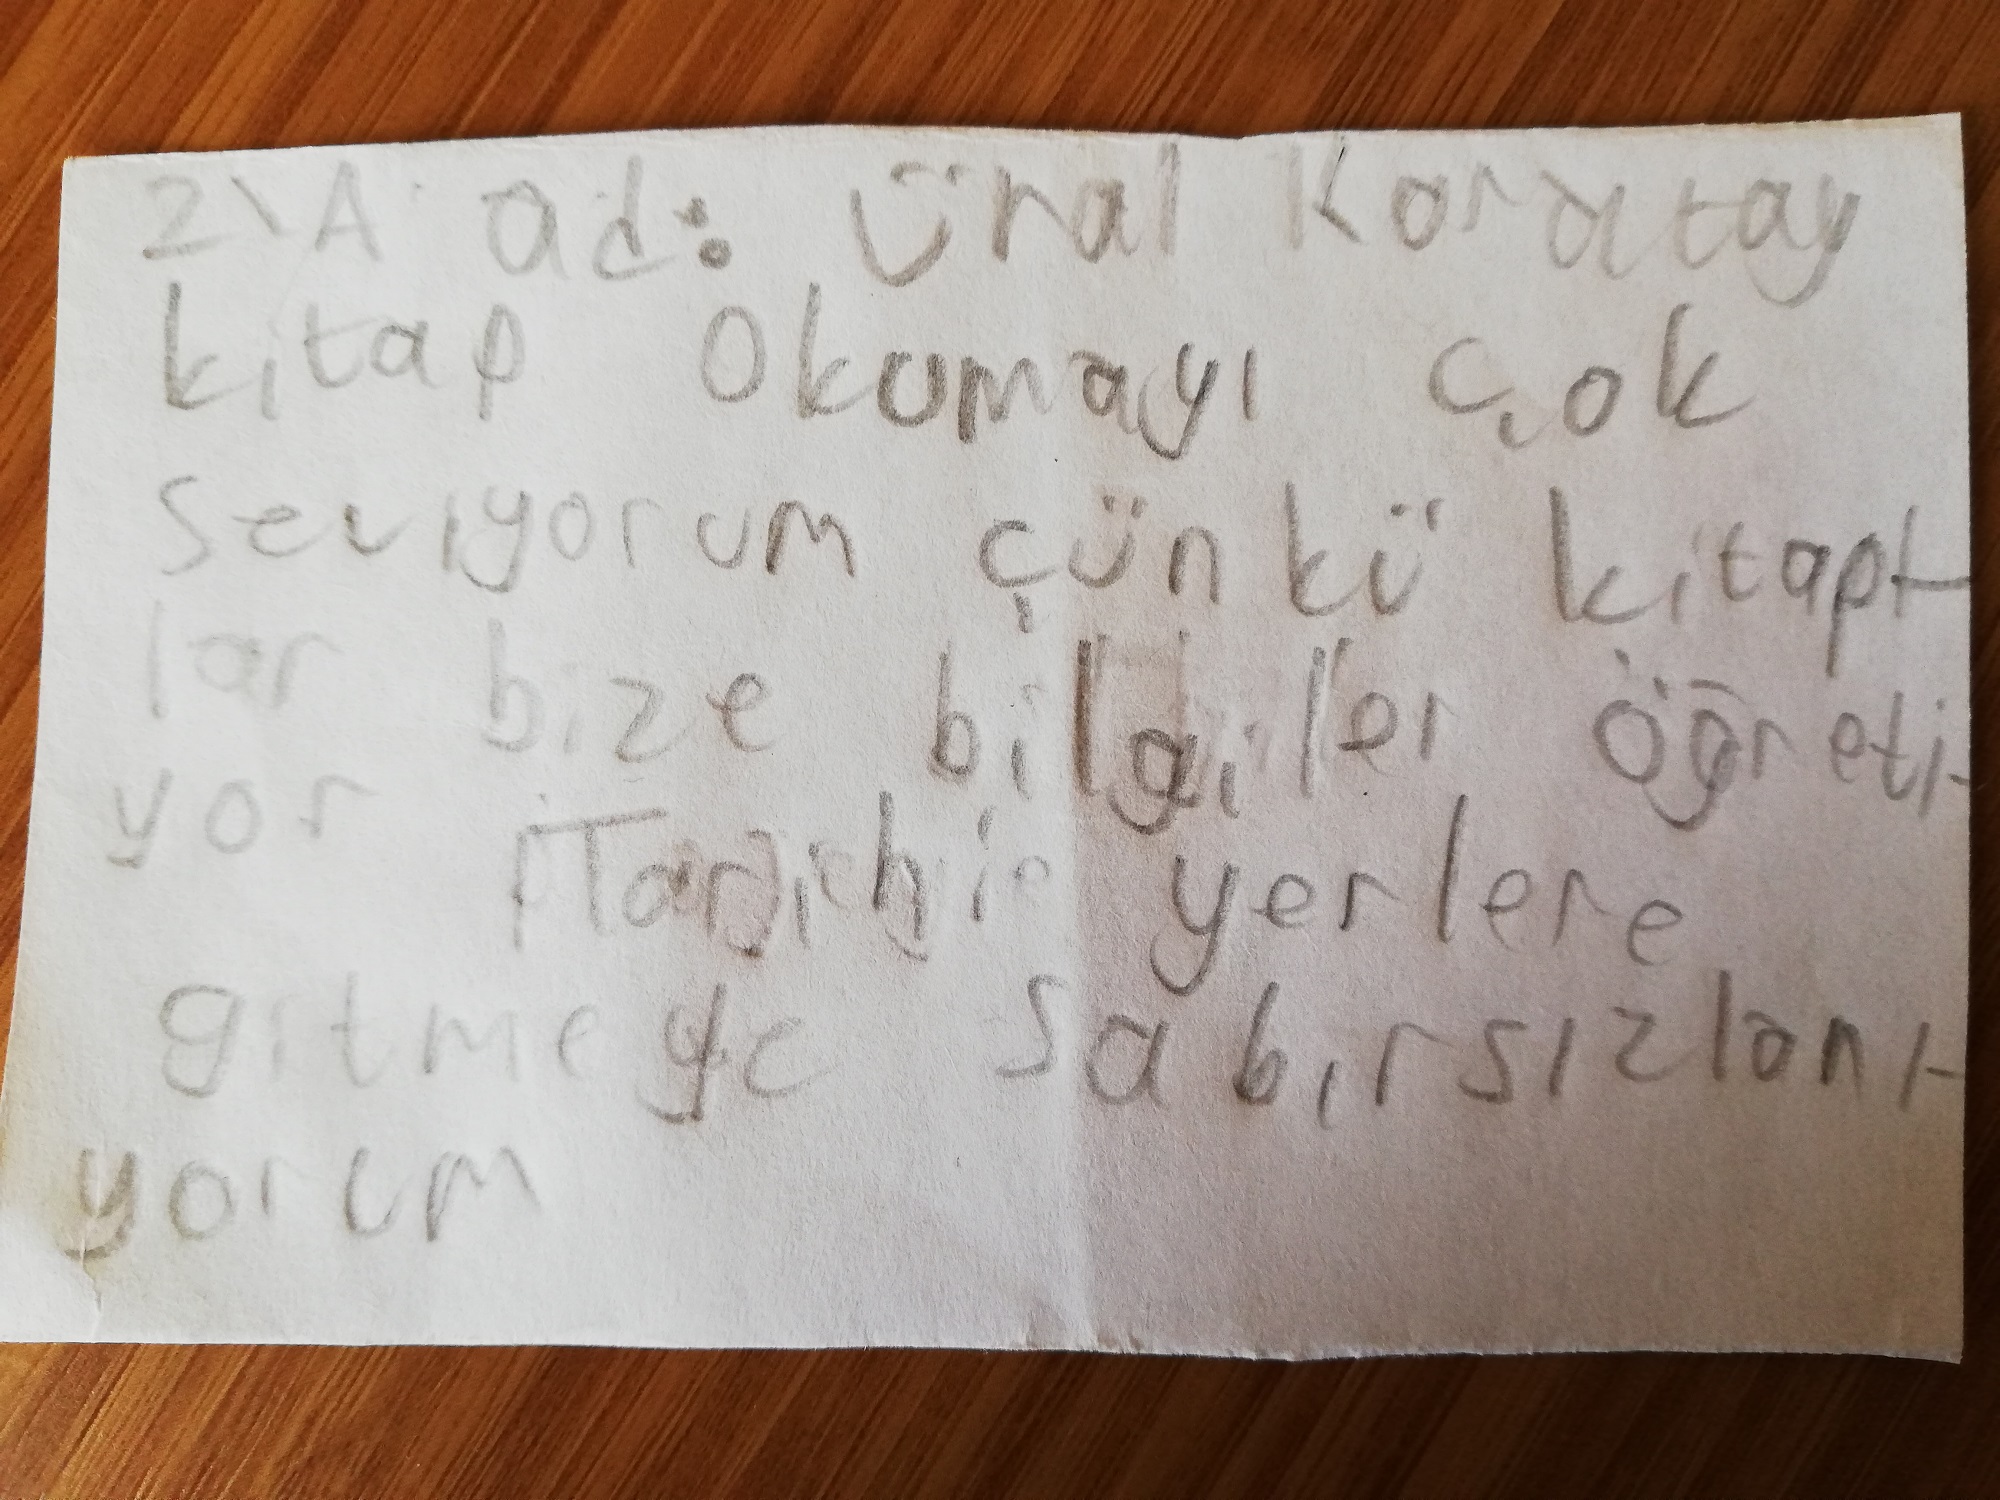 2\A ad: Ünal Koratay
kitap okumayı çok
sevıyorum çünkü kitapt-
lar bize bilgiler öğreti-
yor Tarihi yerlere
gitmeye sabırsızlanı-
yorum